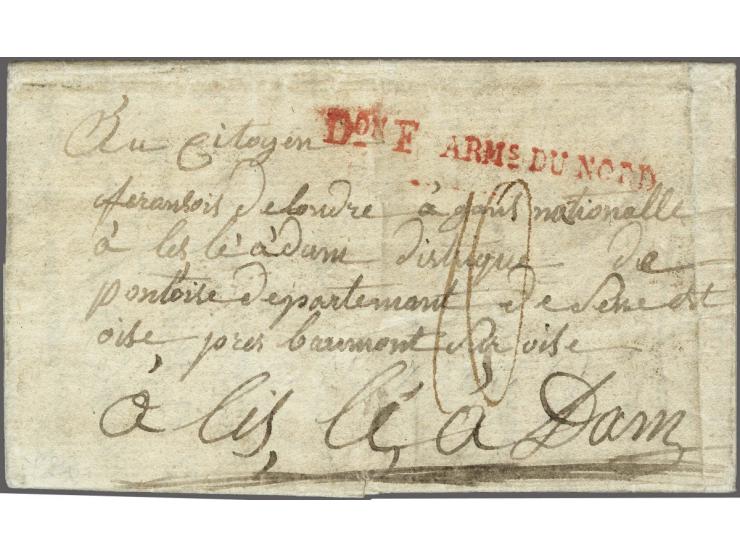 Au Citoyen
DON F ARMs DU NORD
feransois delondre à gans nationalle
à les lé àdam distrique de
pontoise departemant de sene est
oise pres baumont sur oise
10
à lis, lé, à Dam